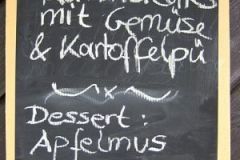 mit Gemüse
& Kartoffelpü
Dessert:
Apfelmus